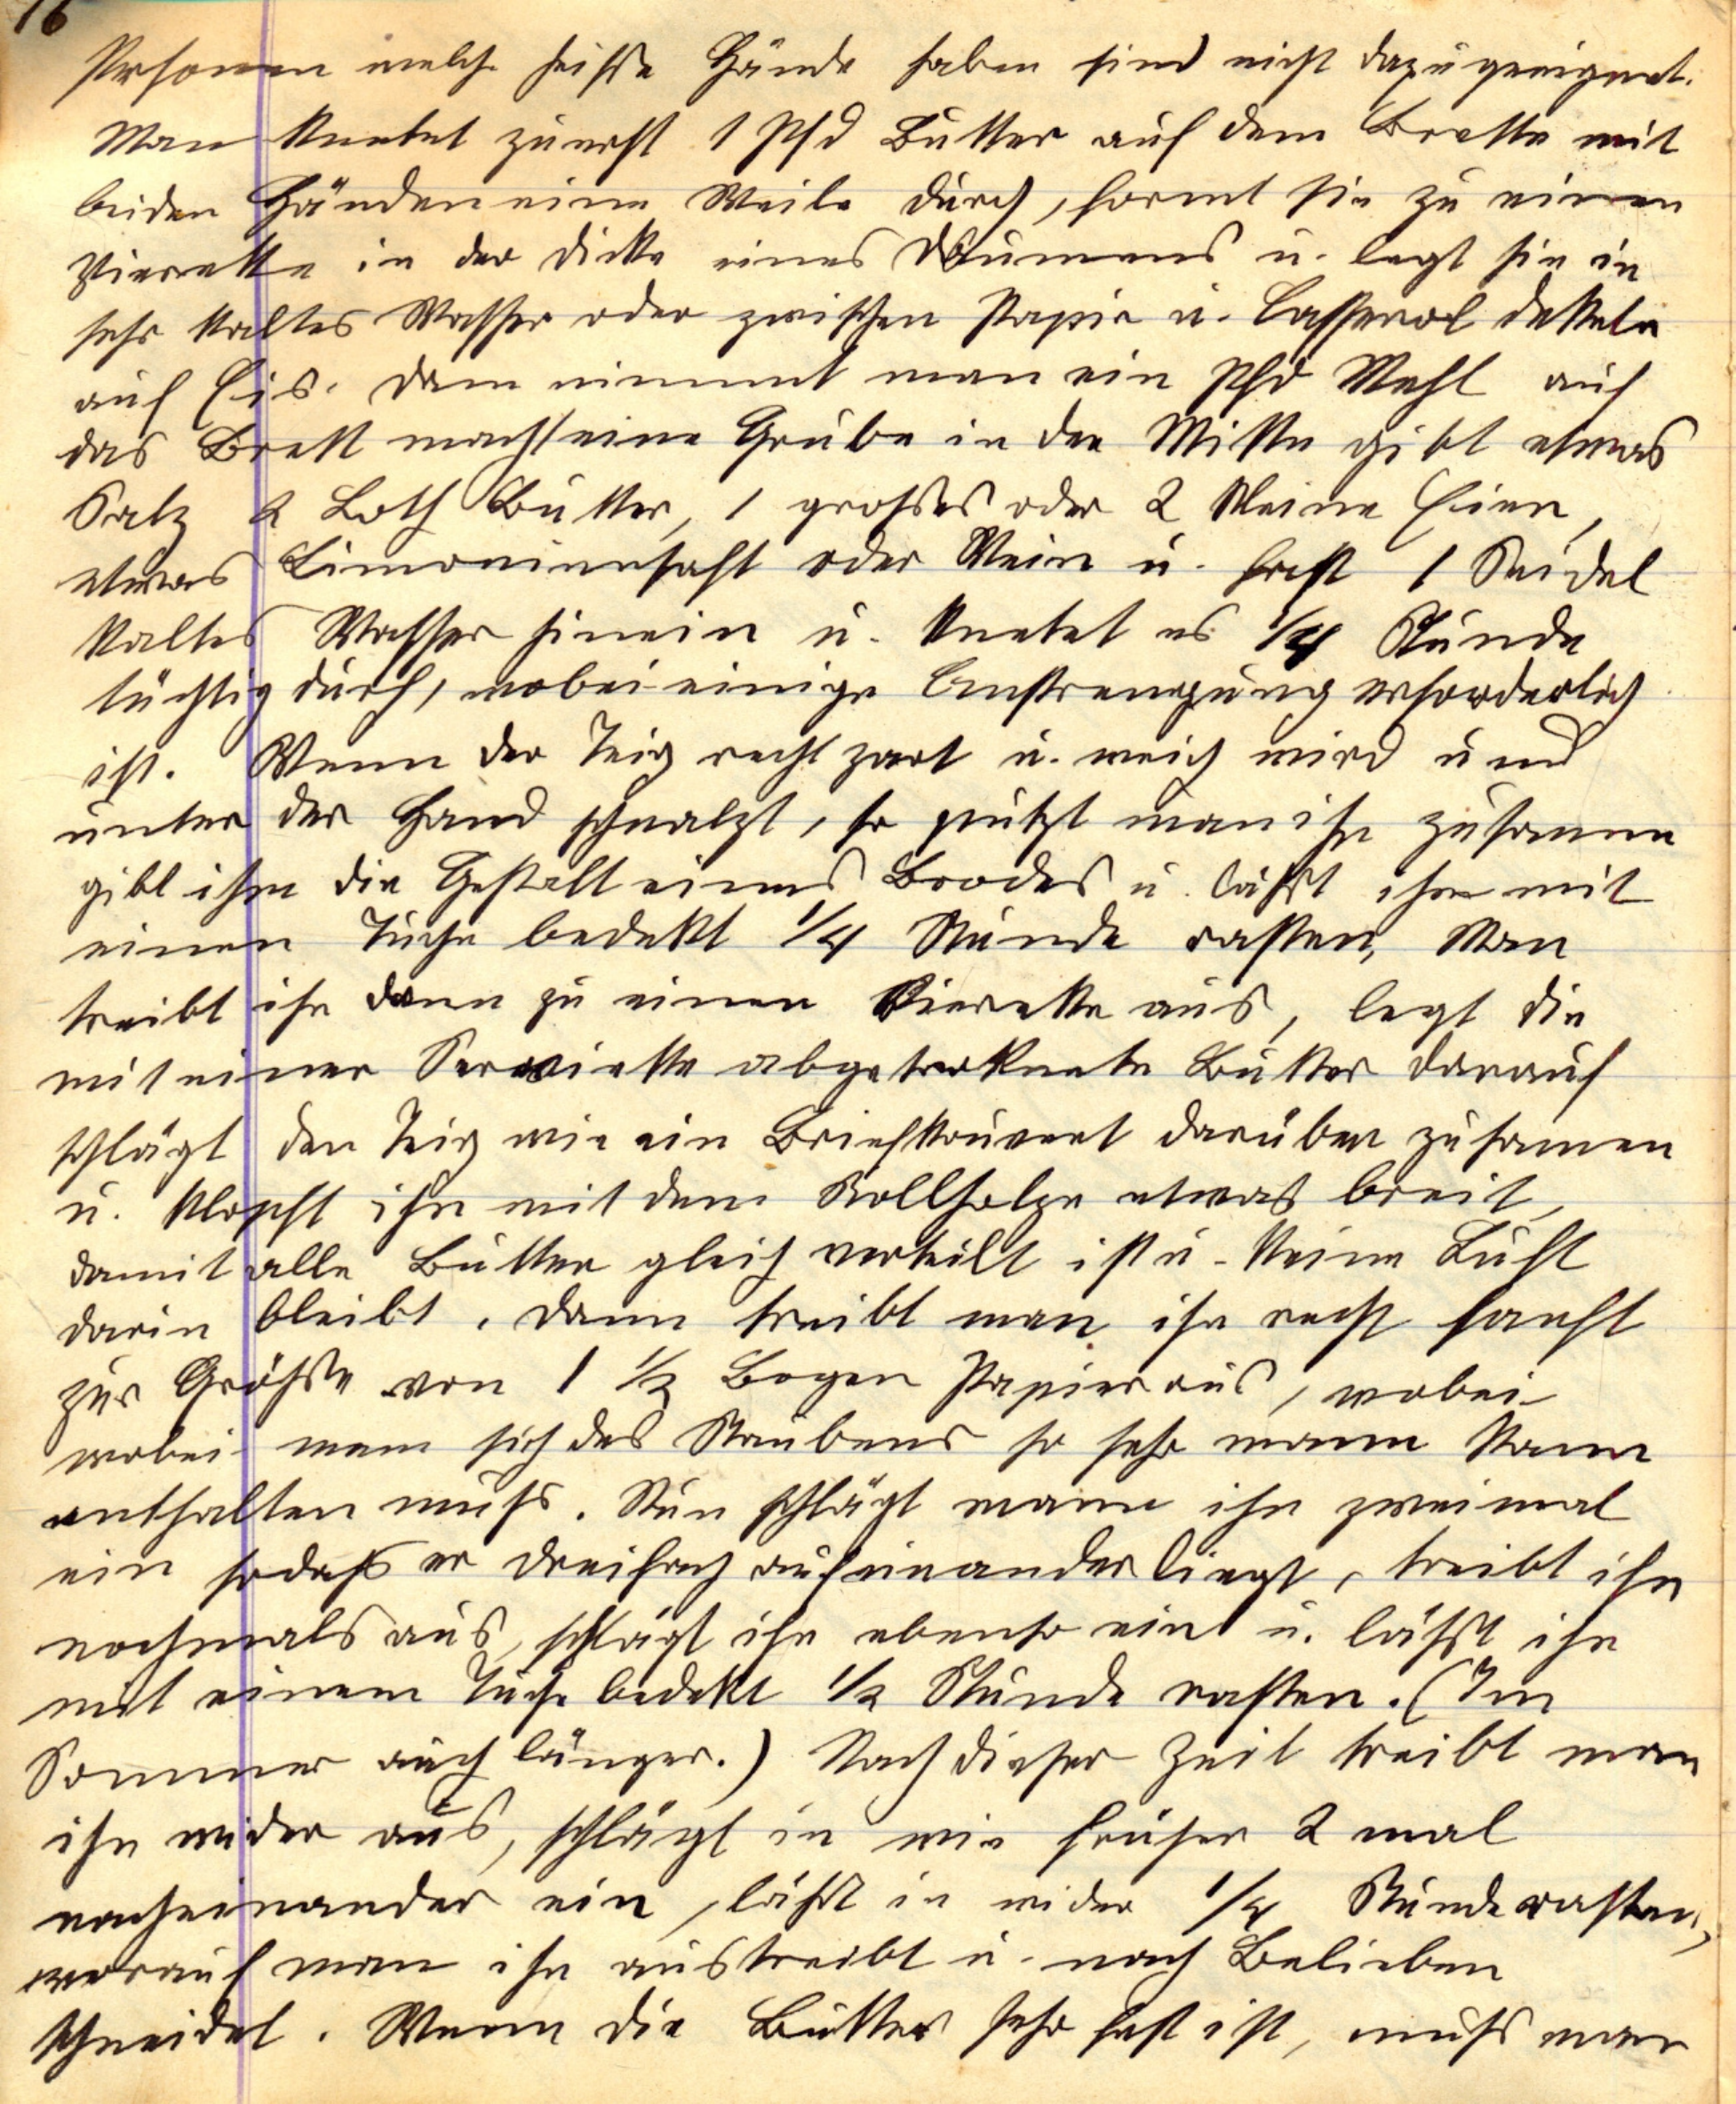 16
Personen welche heisse Hände haben sind nicht dazu geeignet.
Man knetet zuerst 1 Pfd Butter auf dem Brette mit
beiden Händen eine Weile durch, formt sie zu einen
Vierekke in der Dikke eines Daumens u. legt sie in
sehr kaltes Wasser oder zwischen Papir u. Casserol dekkeln
auf Eis. Dann nimmt man ein Pfd Mehl auf
das Brett macht eine Grube in der Mitte gibt etwas
Salz 2 Loth Butter, 1 grosses oder 2 kleine Eier,
etwas Limoniensaft oder Wein u. fast 1 Seidel
kaltes Wasser hinein u. knetet es 1/4 Stunde
tüchtig durch, wobei einige Anstrengung erforderlich
ist. Wenn der Teig recht zart u. weich wird und
unter der Hand schnalzt, so putzt man ihn zusamen
gibt ihm die Gestalt eines Brodes u. läßt ihn mit
einen Tuche bedekt 1/4 Stunde rasten, Man
treibt ihn dann zu einen Vierekke aus, legt die
mit einer Serviette abgetroknete Butter darauf
schlägt den Teig wie ein Briefkouvert darüber zusamen
u. klopft ihn mit dem Rollholze etwas breit,
damit alle Butter gleich verteilt ist u. keine Luft
darin bleibt. Dann treibt man ihn recht sanft
zur Größe von 1 1/2 Bogen Papier aus, wobei
wobei man sich des Staubens so sehr mann kann
enthalten muß. Nun schlägt mann ihn zweimal
ein sodaß er dreifach aufeinander liegt, treibt ihn
nochmals aus, schlägt ihn ebenso ein u. läßt ihn
mit einem Tuche bedekt 1/2 Stunde rasten. (Im
Sommer auch länger.) Nach dieser Zeit treibt man
ihn wider aus, schlägt in wie früher 2 mal
nacheinander ein, läßt in wider 1/4 Stunde rasten,
worauf man ihn austreibt u. nach Belieben
schneidet. Wenn die Butter sehr fest ist, muß man